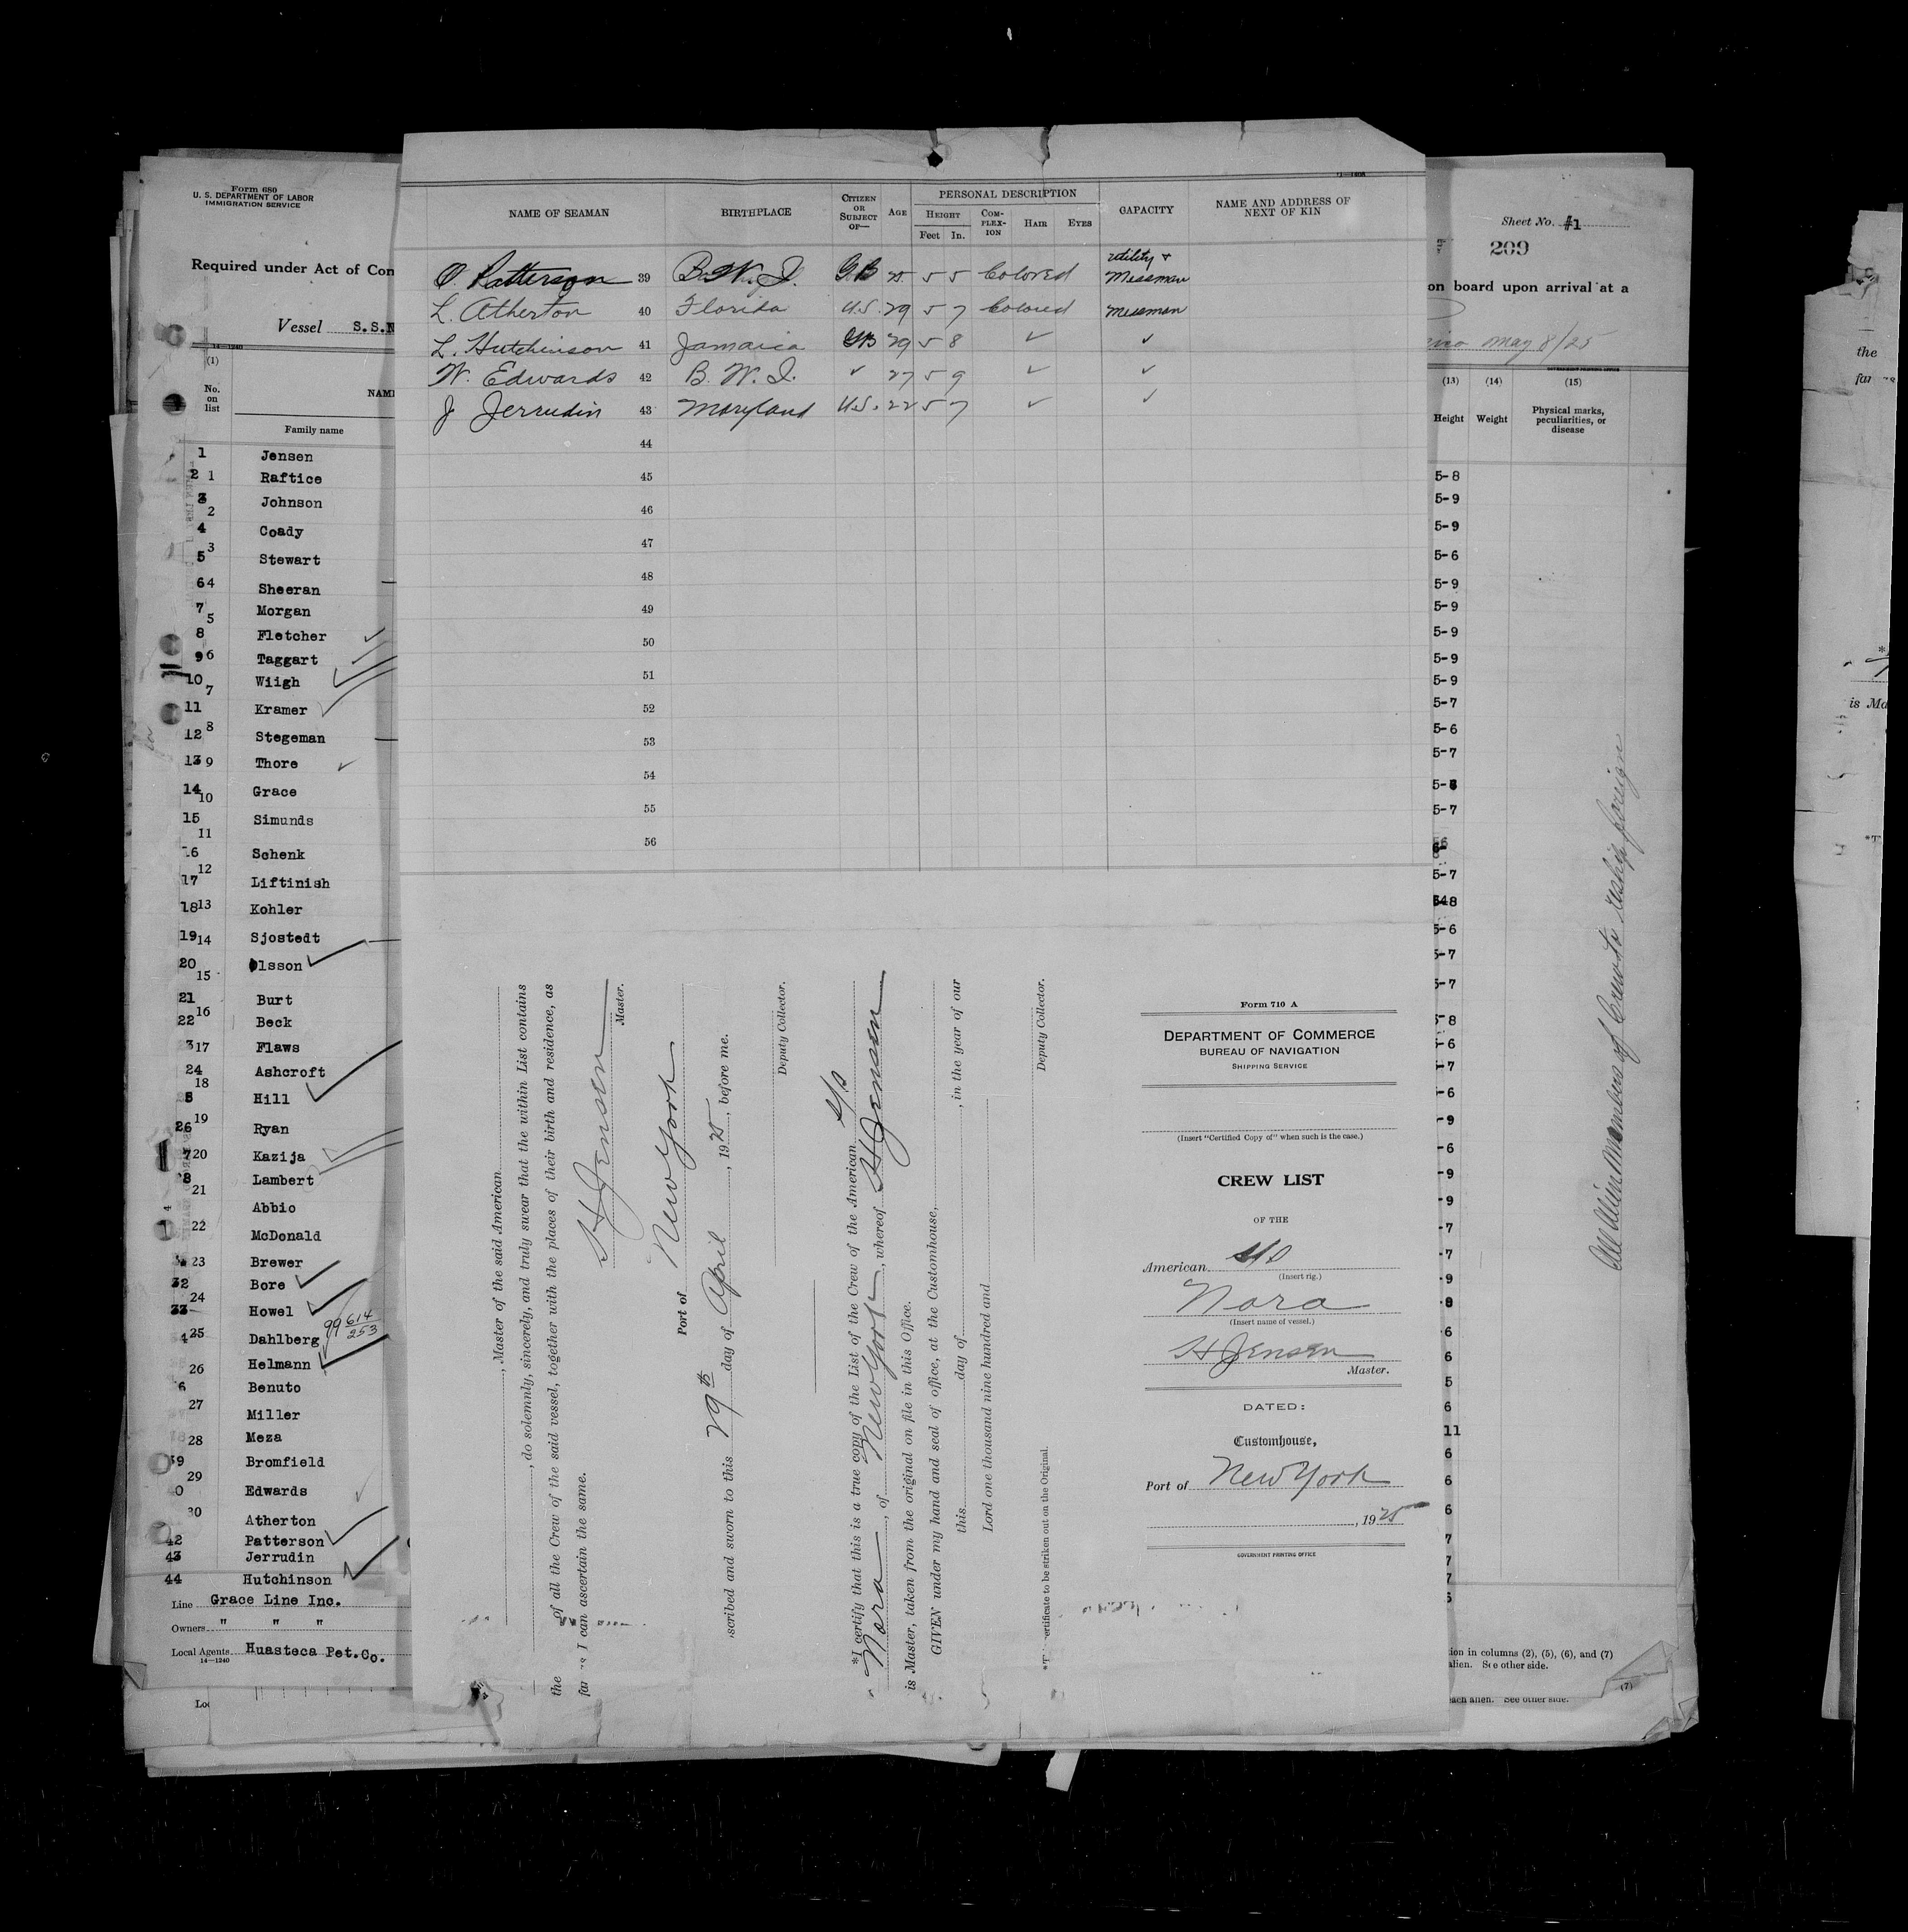 Form 680
U. S. DEPARTMENT OF LABOR
IMMIGRATION SERVICE
Required under Act of Con
Vessel S.S.N
14—1240
(1)
No. on list
NAME
Family name
1 Jensen
2 1 Raftice
3 2 Johnson
4 Coady
5 3 Stewart
6 4 Sheeran
7 5 Morgan
8 Fletcher
9 6 Taggart
10 7 Wiigh
11 Kramer
12 8 Stegeman
13 9 Thore
14 10 Grace
15 11 Simunds
16 Schenk
17 12 Liftinish
18 13 Kohler
19 14 Sjostedt
20 15 Olsson
21 Burt
22 16 Beck
23 17 Flaws
24 18 Ashcroft
Hill
26 19 Ryan
7 20 Kazija
8 21 Lambert
Abbio
22 McDonald
23 Brewer
32 Bore
33 24 Howel
25 Dahlberg 99 614/253
26 Helmann
6 Benuto
27 Miller
28 Meza
39 29 Bromfield
0 Edwards
30 Atherton
42 Patterson
43 Jerrudin
44 Hutchinson
Line Grace Line Inc.
Owners " " "
Local Agents Huasteca Pet.Co.
14—1240
NAME OF SEAMAN BIRTHPLACE CITIZEN OR SUBJECT OF— AGE PERSONAL DESCRIPTION CAPACITY NAME AND ADDRESS OF NEXT OF KIN
HEIGHT COMPLEXION HAIR EYES
Feet In.
O. Patterson 39 B.W.I. G.B 25 5 5 Colored utility + Messman
L. Atherton 40 Florida U.S. 29 5 7 Colored messman
L. Hutchinson 41 Jamaica GB 29 5 8 ✓ ✓
W. Edwards 42 B. W. I. ✓ 27 5 9 ✓ ✓
J Jerrudin 43 Maryland U.S. 22 5 7 ✓ ✓
44
45
46
47
48
49
50
51
52
53
54
55
56
, Master of the said American
, do solemnly, sincerely, and truly swear that the within List contains
the of all the Crew of the said vessel, together with the places of their birth and residence, as
far as I can ascertain the same.
H Jensen
Master.
Port of New York
scribed and sworn to this 29th day of April, 1925, before me.
Deputy Collector.
*I certify that this is a true copy of the List of the Crew of the American S/S
Nora, of New York, whereof H Jensen
is Master, taken from the original on file in this Office.
GIVEN under my hand and seal of office, at the Customhouse,
this day of , in the year of our
Lord one thousand nine hundred and
Deputy Collector.
ertificate to be striken out on the Original.
Form 710 A
DEPARTMENT OF COMMERCE
BUREAU OF NAVIGATION
SHIPPING SERVICE
(Insert "Certified Copy of" when such is the case.)
CREW LIST
OF THE
American S/S
(Insert rig.)
Nora
(Insert name of vessel.)
H Jensen
Master.
DATED:
Customhouse,
Port of New York
, 1925
GOVERNMENT PRINTING OFFICE
Sheet No. #1
209
on board upon arrival at a
may 8/25
(13) (14) (15)
Height Weight Physical marks, peculiarities, or disease
5-8
5-9
5-9
5-6
5-9
5-9
5-9
5-9
5-9
5-7
5-6
5-7
5-7
5-7
5-6
5-7
5-7
-8
-6
-7
-6
-9
-6
-9
-9
-7
-7
-9
6
6
5
6
11
6
6
6
7
7
7
All Alien Members of Crew to reship foreign
tion in columns (2), (5), (6), and (7)
alien. See other side.
each alien. See other side.
(7)
the
is Ma
*T